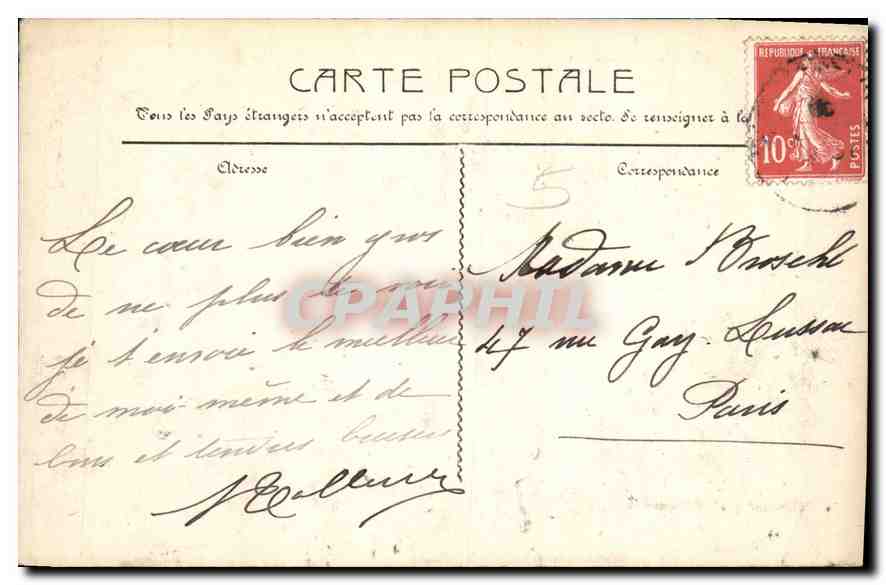 CARTE POSTALE
Tous les Pays étrangers n'acceptent pas la correspondance au recto. Se renseigner à la
Adresse
Correspondance
REPUBLIQUE FRANÇAISE
10c
POSTES
5
Le cœur bien gros
de ne plus te voir
je t'envoie le meilleur
de moi-même et de
bons et tendres baisers
Madame
47 rue Gay-Lussac
Paris
CPAPHIL